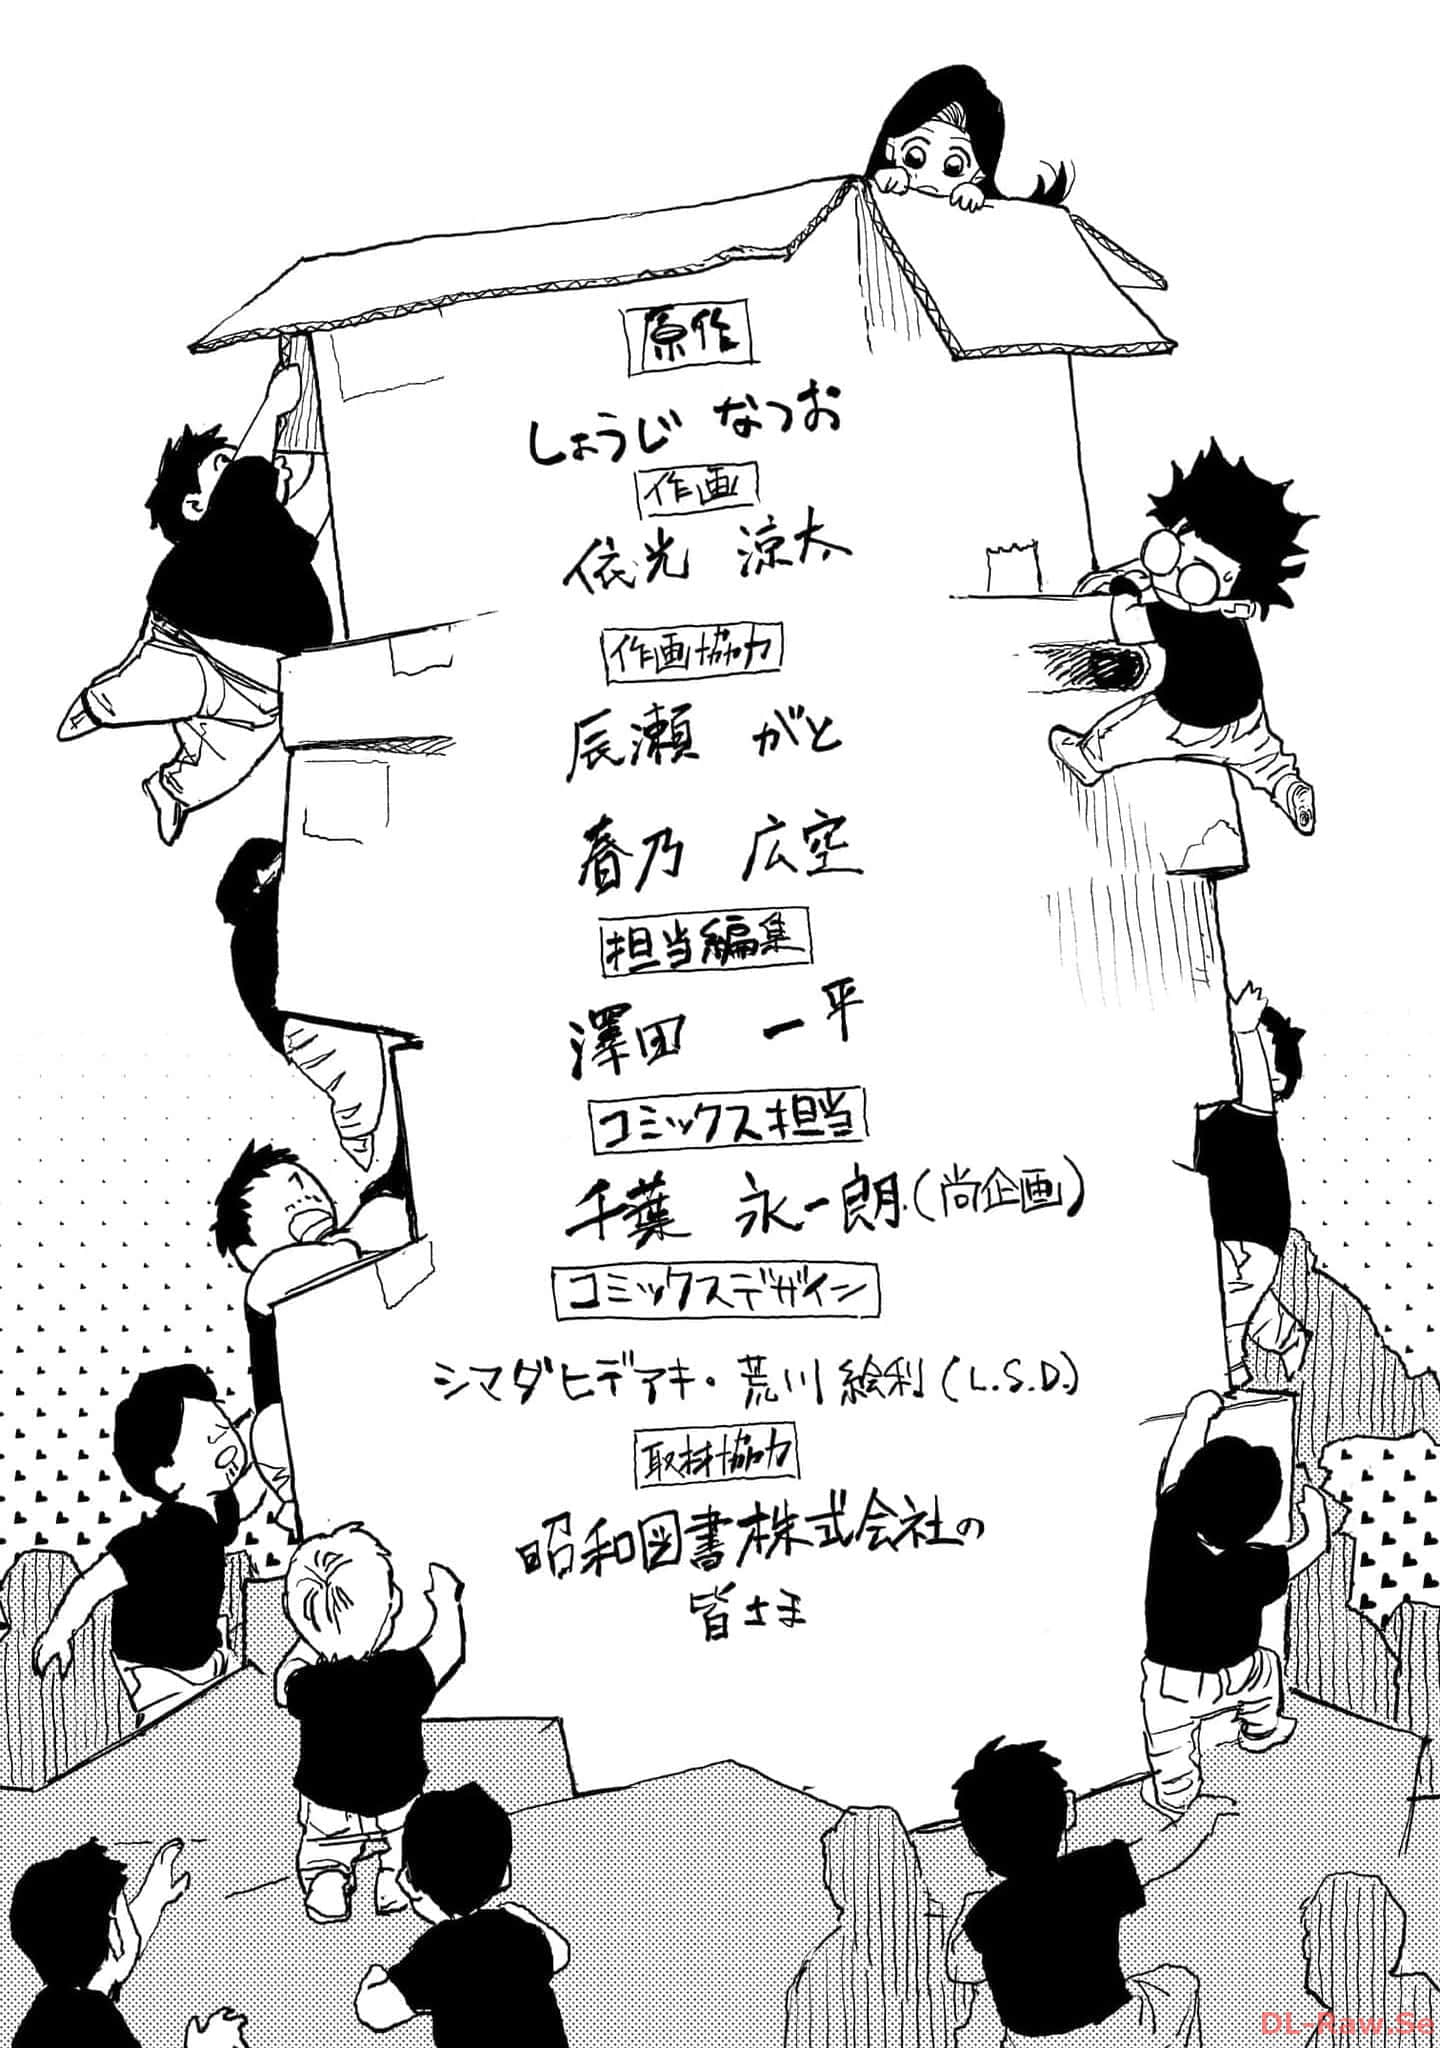 原作
しょうじ なつお
作画
依光 涼太
作画協力
辰瀬 がと
春乃 広空
担当編集
澤田 一平
コミックス担当
千葉 永一朗(尚企画)
コミックスデザイン
シマダヒデアキ・荒川絵利(L.S.D.)
取材協力
昭和図書株式会社の
皆さま
DL-Raw.Se